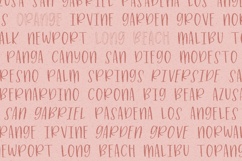 AZUSA SAN GABRIEL PASADENA LOS ANGELES
ORANGE IRVINE GARDEN GROVE NORW
ALK NEWPORT LONG BEACH MALIBU TOP
PANGA CANYON SAN DIEGO MODESTO
FRESNO PALM SPRINGS RIVERSIDE SA
BERNARDINO CORONA BIG BEAR AZUS
SAN GABRIEL PASADENA LOS ANGELES
RANGE IRVINE GARDEN GROVE NORWA
NEWPORT LONG BEACH MALIBU TOPAN